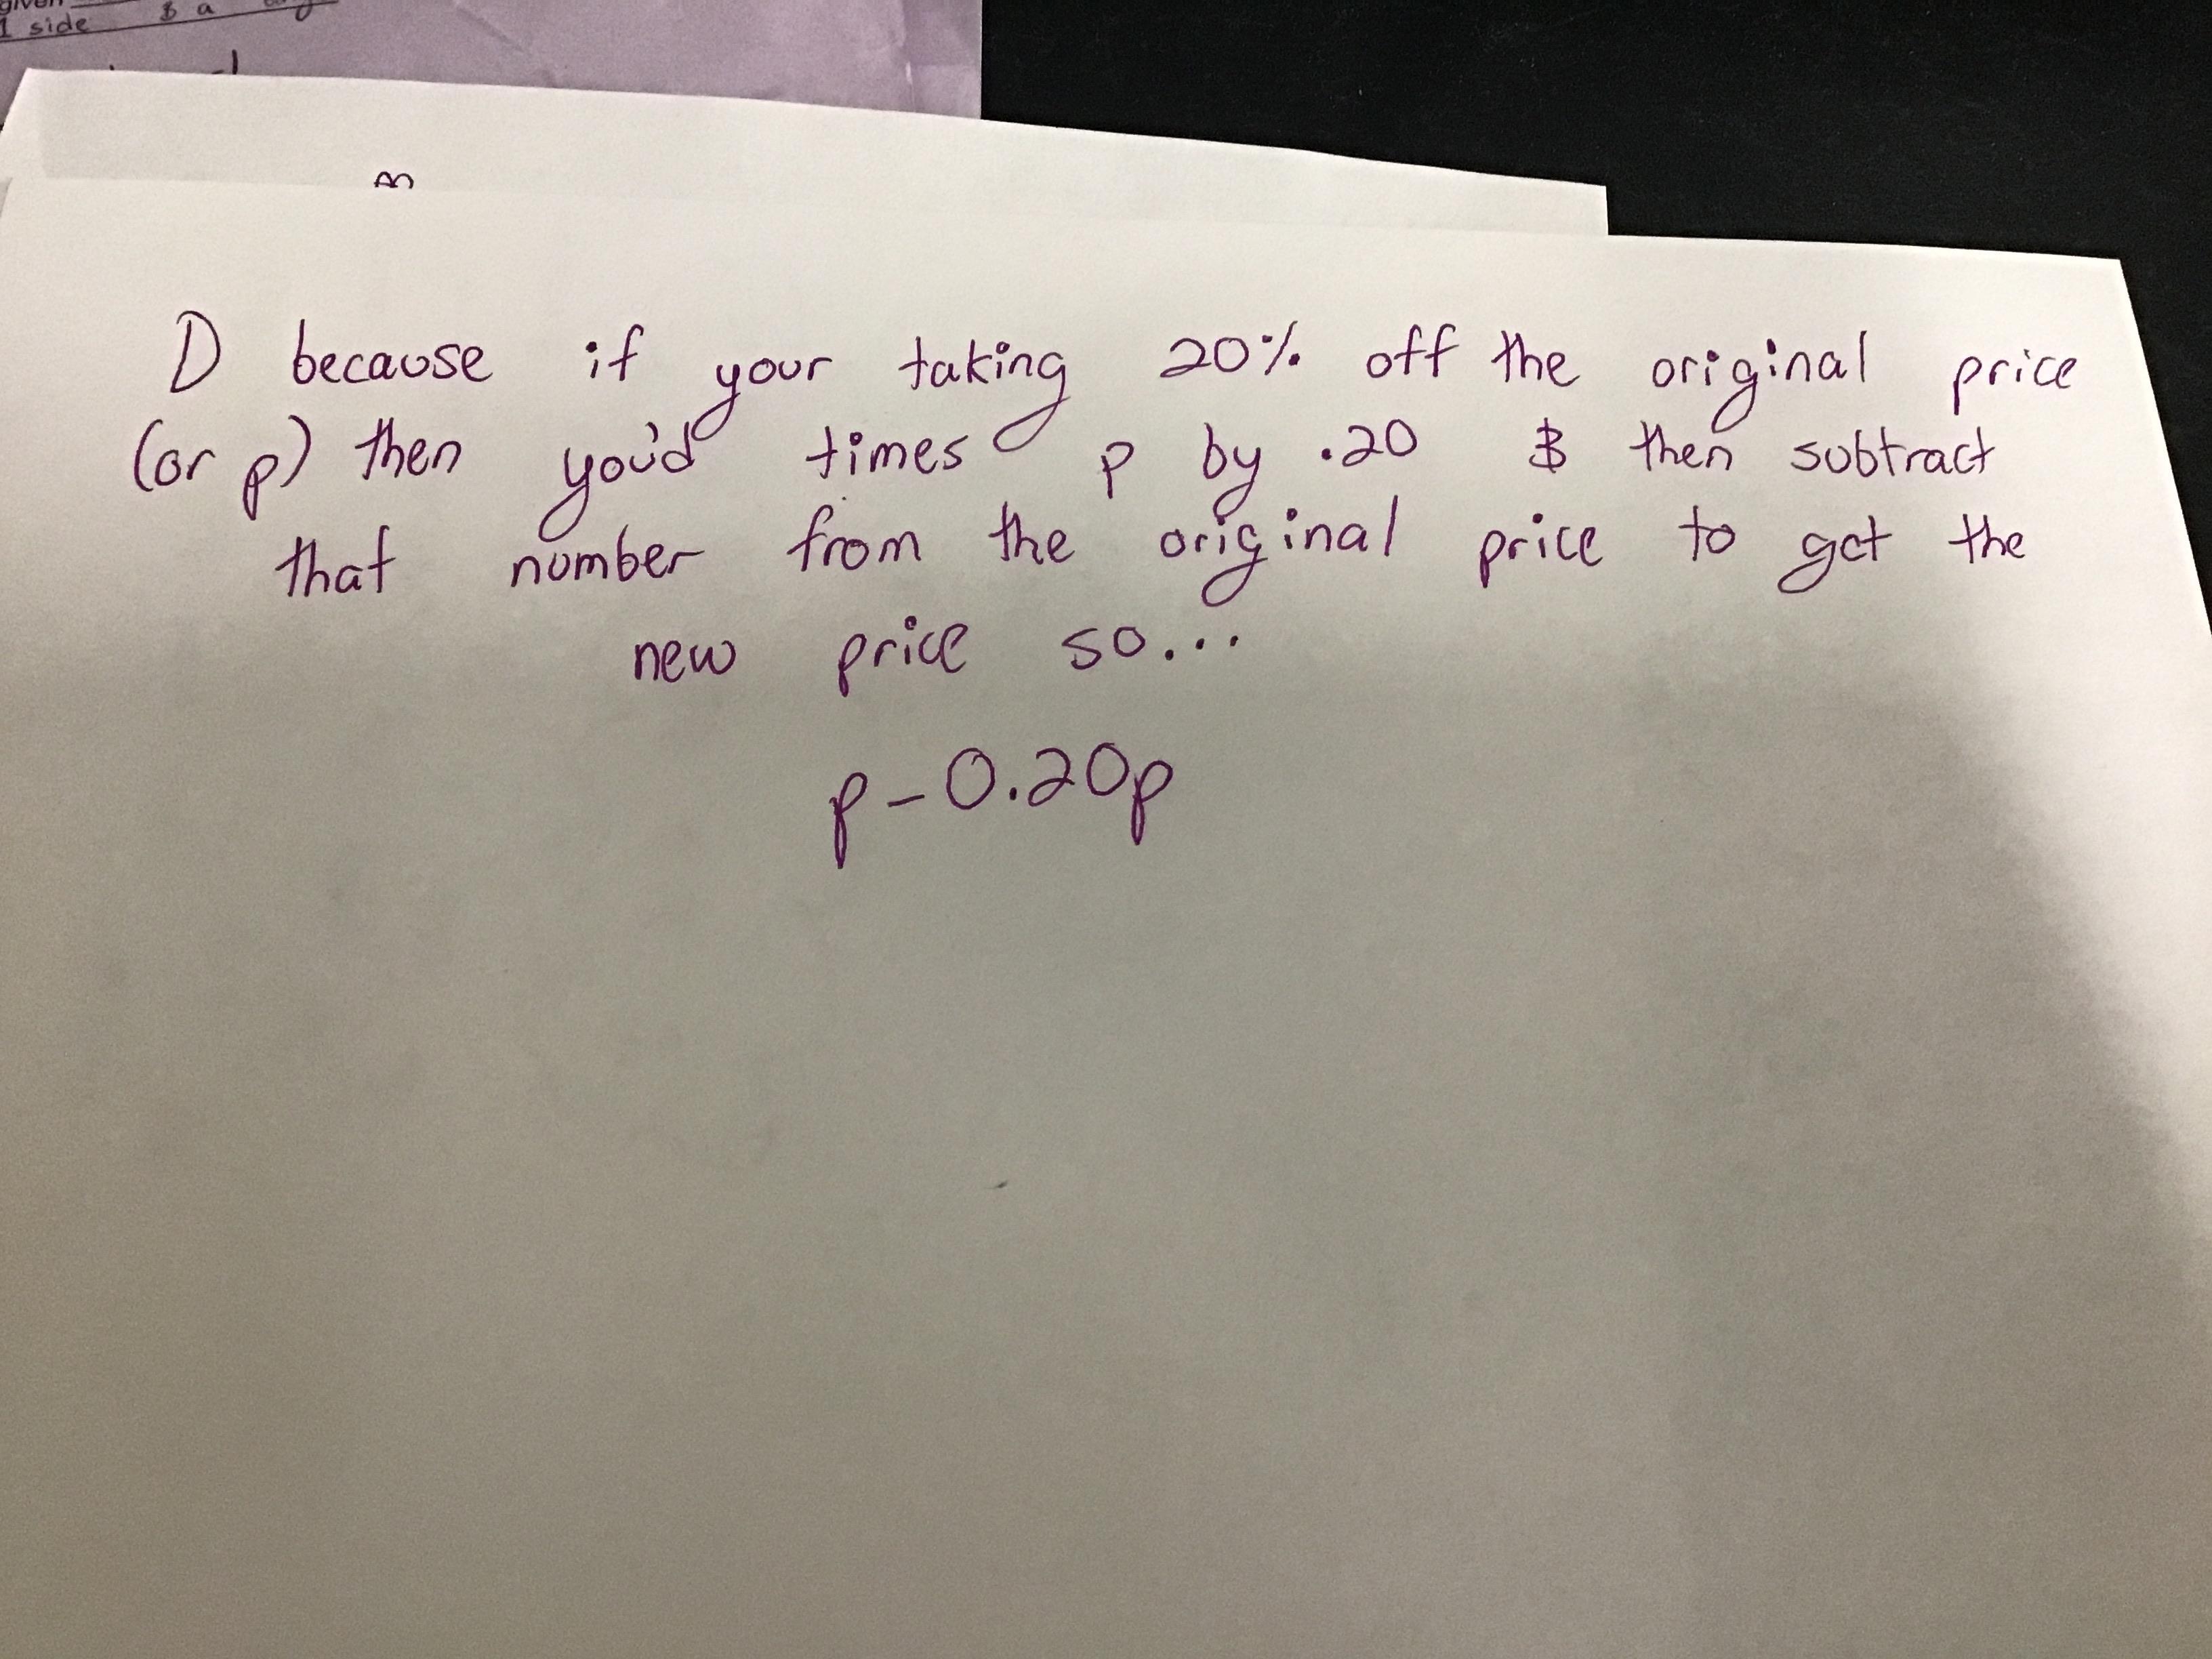 given
1 side & a
D because if your taking 20% off the original price
(or p) then you'd times p by .20 & then subtract
that number from the original price to get the
new price so...
p-0.20p